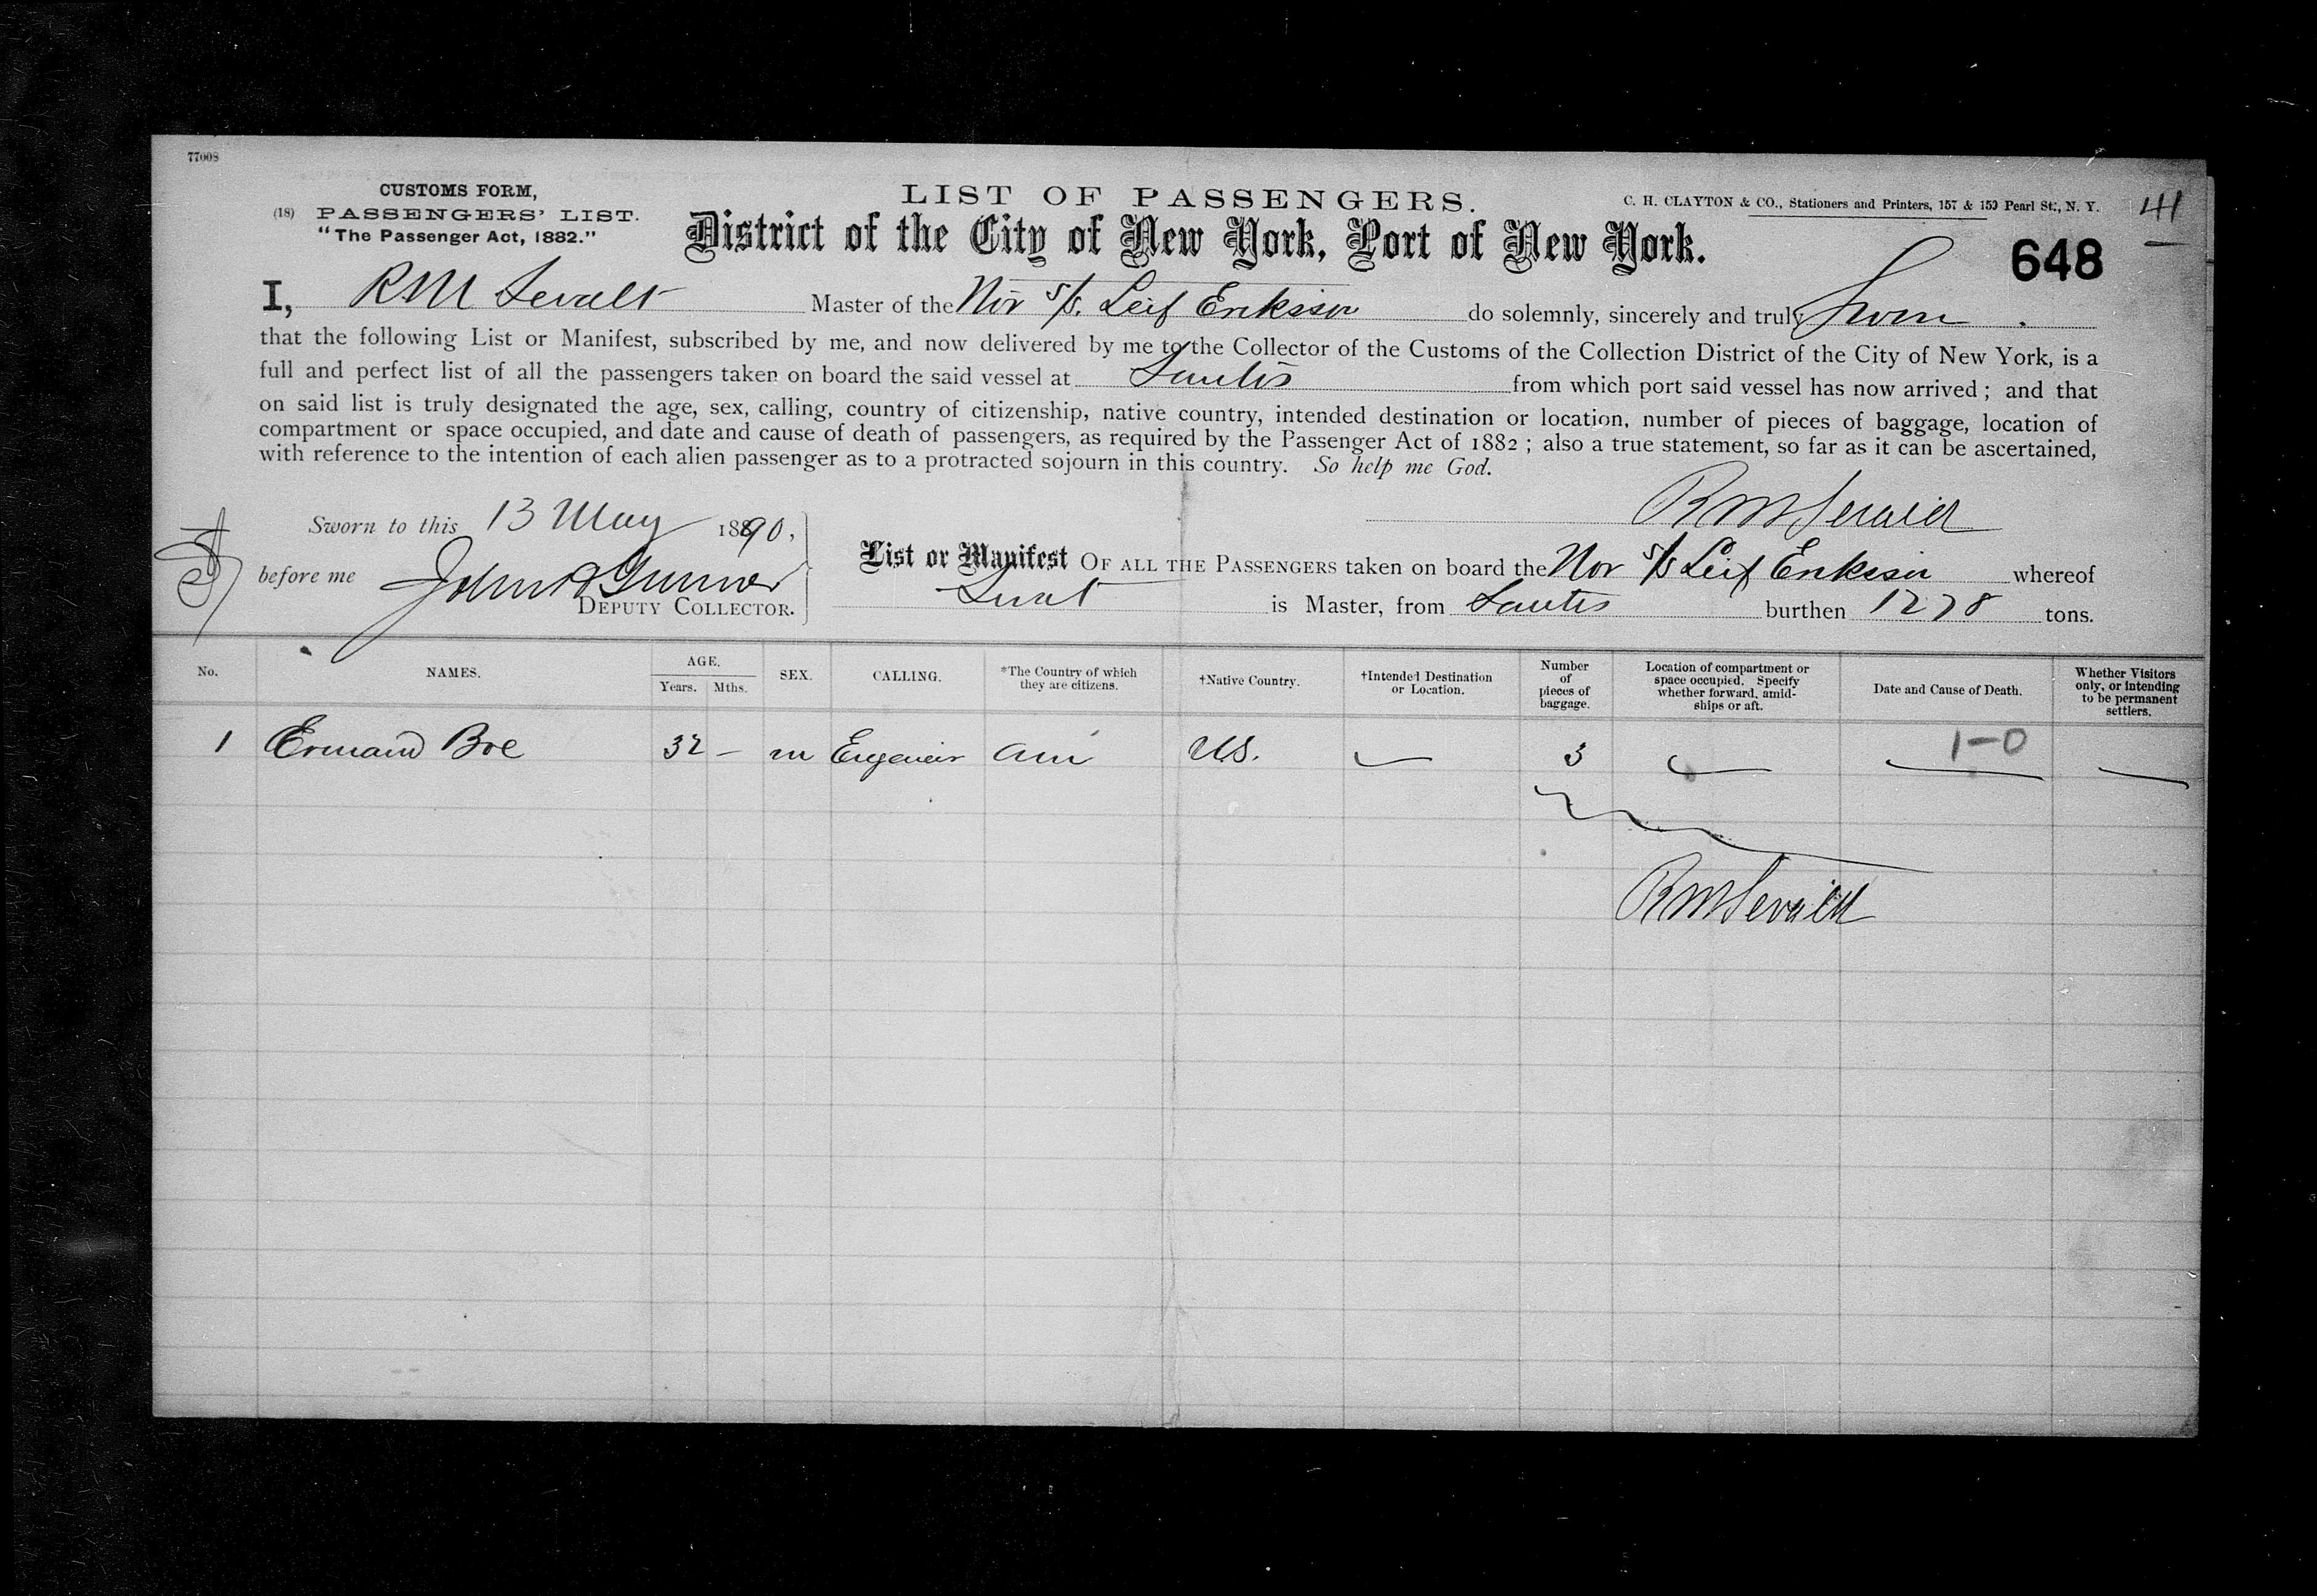 77008
CUSTOMS FORM,
(18) PASSENGERS' LIST.
"The Passenger Act, 1882."
LIST OF PASSENGERS.
C. H. CLAYTON & CO., Stationers and Printers, 157 & 159 Pearl St., N. Y.
41
District of the City of New York, Port of New York.
648
I, R M Sevalt Master of the Nor s/s. Leif Eriksson do solemnly, sincerely and truly Swear
that the following List or Manifest, subscribed by me, and now delivered by me to the Collector of the Customs of the Collection District of the City of New York, is a
full and perfect list of all the passengers taken on board the said vessel at Santos from which port said vessel has now arrived; and that
on said list is truly designated the age, sex, calling, country of citizenship, native country, intended destination or location, number of pieces of baggage, location of
compartment or space occupied, and date and cause of death of passengers, as required by the Passenger Act of 1882; also a true statement, so far as it can be ascertained,
with reference to the intention of each alien passenger as to a protracted sojourn in this country. So help me God.
Sworn to this 13 May 1890,
before me
DEPUTY COLLECTOR.
List or Manifest OF ALL THE PASSENGERS taken on board the Nor s/s Leif Eriksson whereof
is Master, from Santos burthen 1278 tons.
No. NAMES. AGE. Years. Mths. SEX. CALLING. *The Country of which they are citizens. †Native Country. †Intended Destination or Location. Number of pieces of baggage. Location of compartment or space occupied. Specify whether forward, amidships or aft. Date and Cause of Death. Whether Visitors only, or intending to be permanent settlers.
1 Ermand Boe 32 – m Engeneer Am U.S. — 3 — 1-0 —